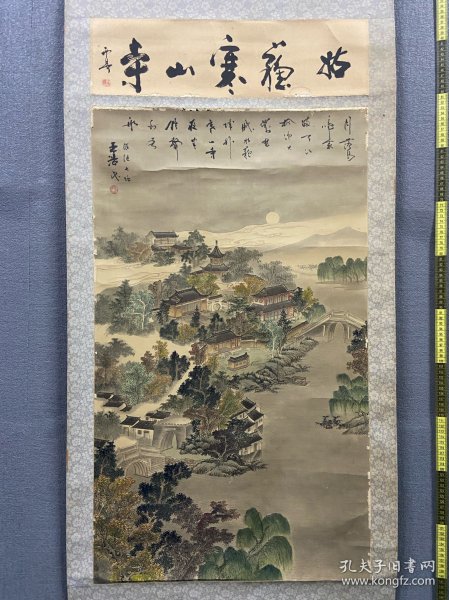 姑蘇寒山寺
月落烏
啼霜
滿天江
楓漁火
對愁
眠姑蘇
城外
寒山寺
夜半
鐘聲
到客
船
孔夫子旧书网